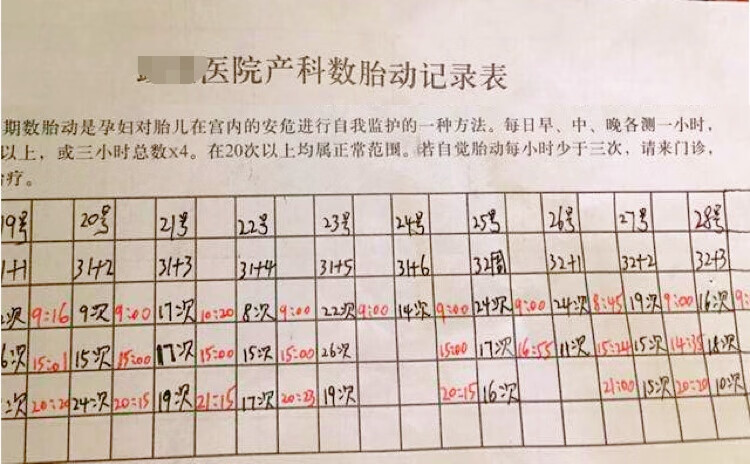 医院产科数胎动记录表
期数胎动是孕妇对胎儿在宫内的安危进行自我监护的一种方法。每日早、中、晚各测一小时，
以上，或三小时总数X4。在20次以上均属正常范围。若自觉胎动每小时少于三次，请来门诊，
疗。
19号 20号 21号 22号 23号 24号 25号 26号 27号 28号
1+1 31+2 31+3 31+4 31+5 31+6 32周 32+1 32+2 32+3
次 9:16 9次 9:00 17次 10:20 8次 9:00 22次 9:00 14次 9:00 24次 9:00 24次 8:45 19次 9:00 16次 9:
6次 15:01 15次 15:00 17次 15:00 15次 15:00 26次 15:00 17次 16:55 11次 15:24 15次 14:35 18次
次 20:20 24次 20:15 19次 21:15 17次 20:23 19次 20:15 16次 21:00 15次 20:20 10次